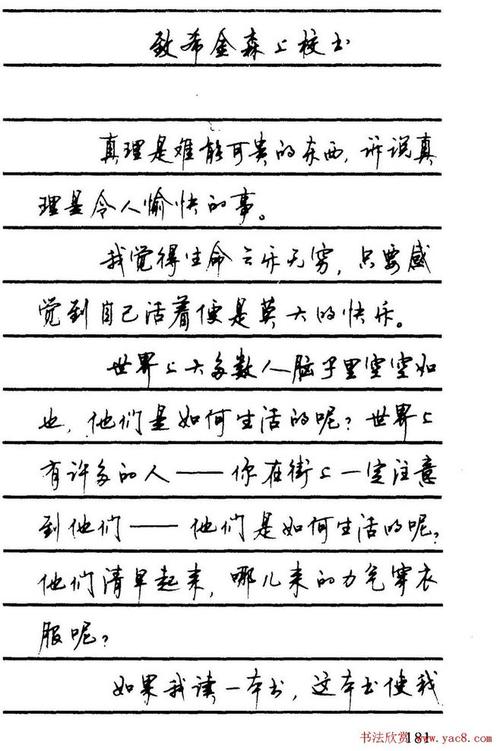 致希金森上校书
真理是难能可贵的东西,诉说真
理是令人愉快的事。
我觉得生命云乐无穷,只要感
觉到自己活着便是莫大的快乐。
世界上大多数人脑子里空空如
也,他们是如何生活的呢?世界上
有许多的人——你在街上一定注意
到他们——他们是如何生活的呢?
他们清早起来,哪儿来的力气穿衣
服呢?
如果我读一本书,这本书使我
181
书法欣赏www.yac8.com